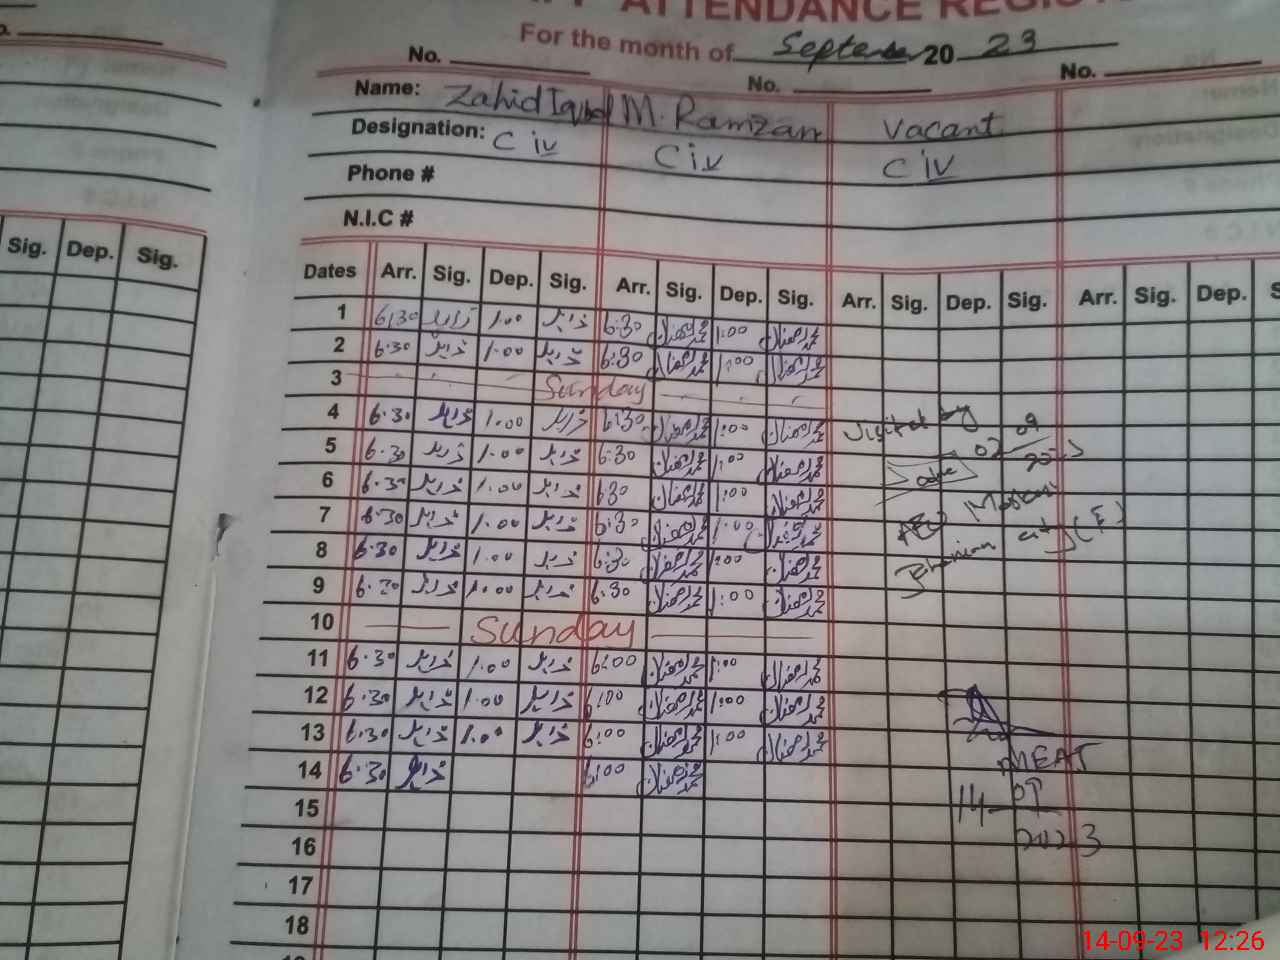 ATTENDANCE REGIST
For the month of September 20 23
No. No. No.
Name: Zahid Iqbal M. Ramzan Vacant
Designation: C iv C iv C iv
Phone #
N.I.C #
Sig. Dep. Sig.
Dates Arr. Sig. Dep. Sig. Arr. Sig. Dep. Sig. Arr. Sig. Dep. Sig. Arr. Sig. Dep. S
1 6:30 زاہد 1.00 زاہد 6:30 محمد رمضان 1:00 محمد رمضان
2 6.30 زاہد 1.00 زاہد 6:30 محمد رمضان 1:00 محمد رمضان
3 Sunday
4 6.30 زاہد 1.00 زاہد 6:30 محمد رمضان 1:00 محمد رمضان
Visited by
5 6.30 زاہد 1.00 زاہد 6:30 محمد رمضان 1:00 محمد رمضان
09
2023
6 6.30 زاہد 1.00 زاہد 6:30 محمد رمضان 1:00 محمد رمضان
7 6.30 زاہد 1.00 زاہد 6:30 محمد رمضان 1:00 محمد رمضان
AEO
8 6.30 زاہد 1.00 زاہد 6:30 محمد رمضان 1:00 محمد رمضان
9 6.30 زاہد 1.00 زاہد 6:30 محمد رمضان 1:00 محمد رمضان
10 Sunday
11 6.30 زاہد 1.00 زاہد 6:00 محمد رمضان 1:00 محمد رمضان
12 6.30 زاہد 1.00 زاہد 6:00 محمد رمضان 1:00 محمد رمضان
13 6.30 زاہد 1.00 زاہد 6:00 محمد رمضان 1:00 محمد رمضان
MEAT
14 6.30 زاہد 6:00 محمد رمضان
14 09
15
2023
16
17
18
14-09-23 12:26